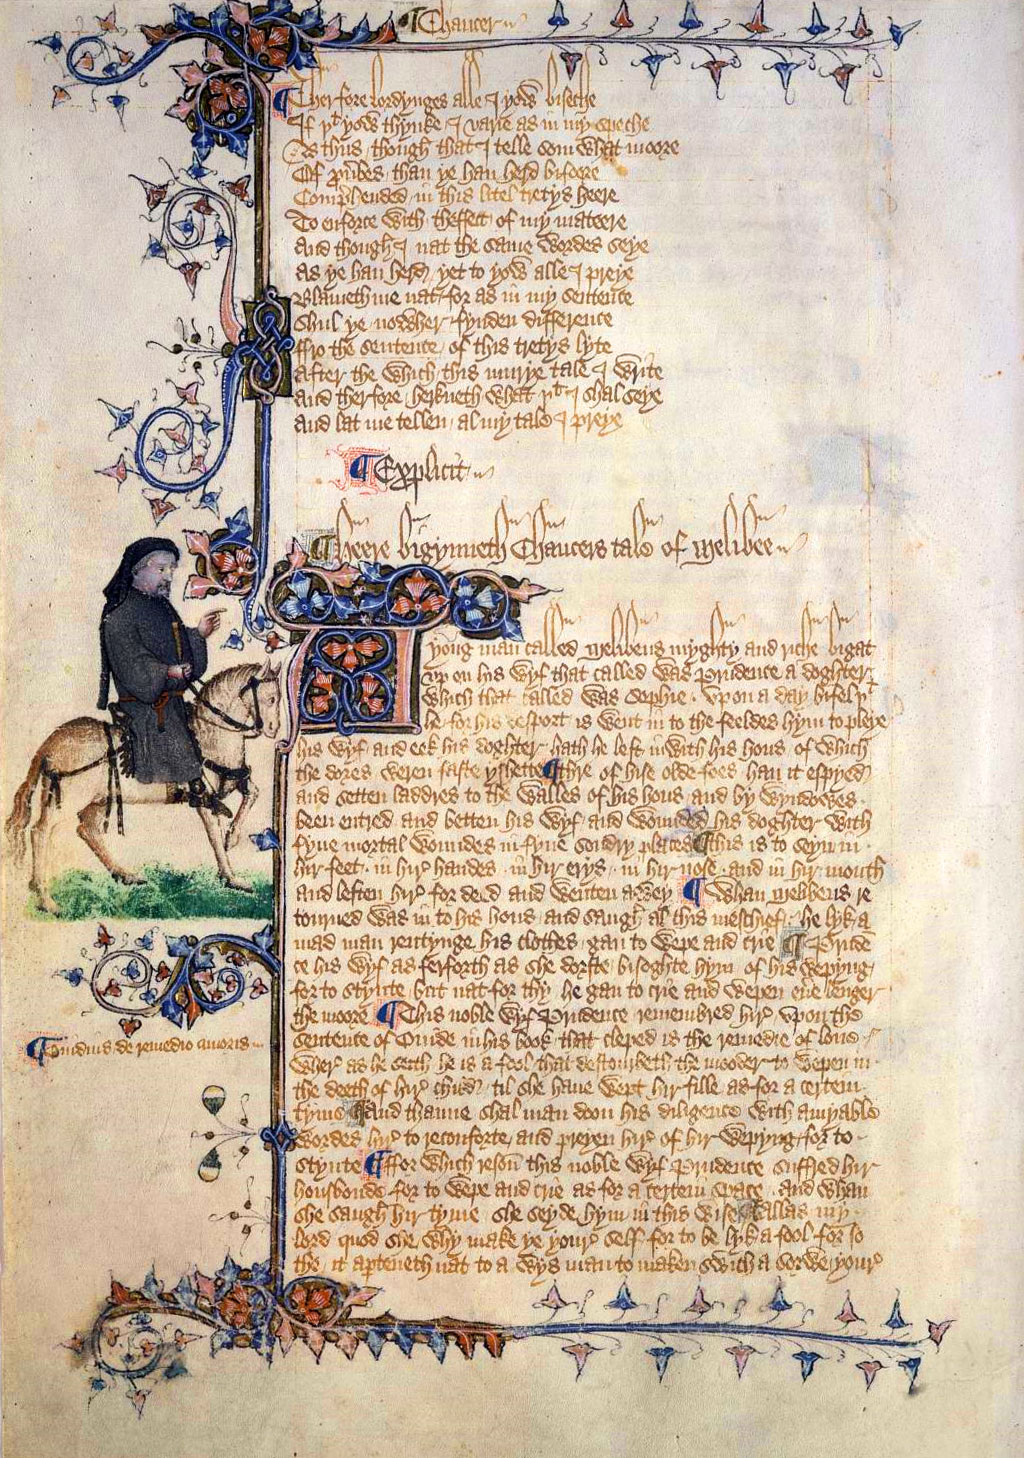 Chaucer
Therfore lordynges alle I yow biseche
If þt yow thynke I varie as in my speche
As thus though that I telle som what moore
Of prouerbes than ye han herd bifoore
Comprehended in this litel tretys heere
To enforce with theffect of my mateere
And though I nat the same wordes seye
As ye han herd yet to yow alle I preye
Blameth me nat for as in my sentence
Shul ye nowher fynden difference
ffro the sentence of this tretys lyte
After the which this murye tale I write
And therfore herkneth what þt I shal seye
And lat me tellen al my tale I preye
¶ Explicit
¶ Heere bigynneth Chaucers tale of Melibee
A yong man called Melibeus myghty and riche bigat
vp on his wyf that called was Prudence a doghter
which that called was Sophie . vpon a day bifel þt
he for his desport is went in to the feeldes hym to pleye
his wyf and eek his doghter hath he left inwith his hous of which
the dores weren faste yshette ¶ thre of hise olde foes han it espyed
and setten laddres to the walles of his hous and by wyndowes
been entred and betten his wyf and wounded his doghter with
fyue mortal woundes in fyue sondry places ¶ this is to seyn in
hir feet . in hir handes . in hir erys . in hir nose . and in hir mouth
and leften hir for deed and wenten awey ¶ Whan Melibeus re
tourned was in to his hous and saugh al this meschief . he lyk a
mad man rentynge his clothes gan to wepe and crie ¶ Pruden
ce his wyf as ferforth as she dorste bisoghte hym of his wepyng
for to stynte but nat for thy he gan to crie and wepen euere lenger
the moore ¶ This noble wyf Prudence remembred hir vpon the
sentence of Ouide in his book that cleped is the remedie of loue
Wher as he seith he is a fool that destourbeth the mooder to wepen in
the deeth of hir child til she haue wept hir fille as for a certein
tyme ¶ And thanne shal man doon his diligence with amyable
wordes hir to reconforte and preyen hir of hir wepyng for to
stynte ¶ ffor which reson this noble wyf Prudence suffred hir
housbonde for to wepe and crie as for a certein space . and whan
she saugh hir tyme she seyde hym in this wise ¶ Allas my
lord quod she why make ye your self for to be lyk a fool for so
the it aperteneth nat to a wys man to maken swich a sorwe your
¶ Ouidius de remedio amoris